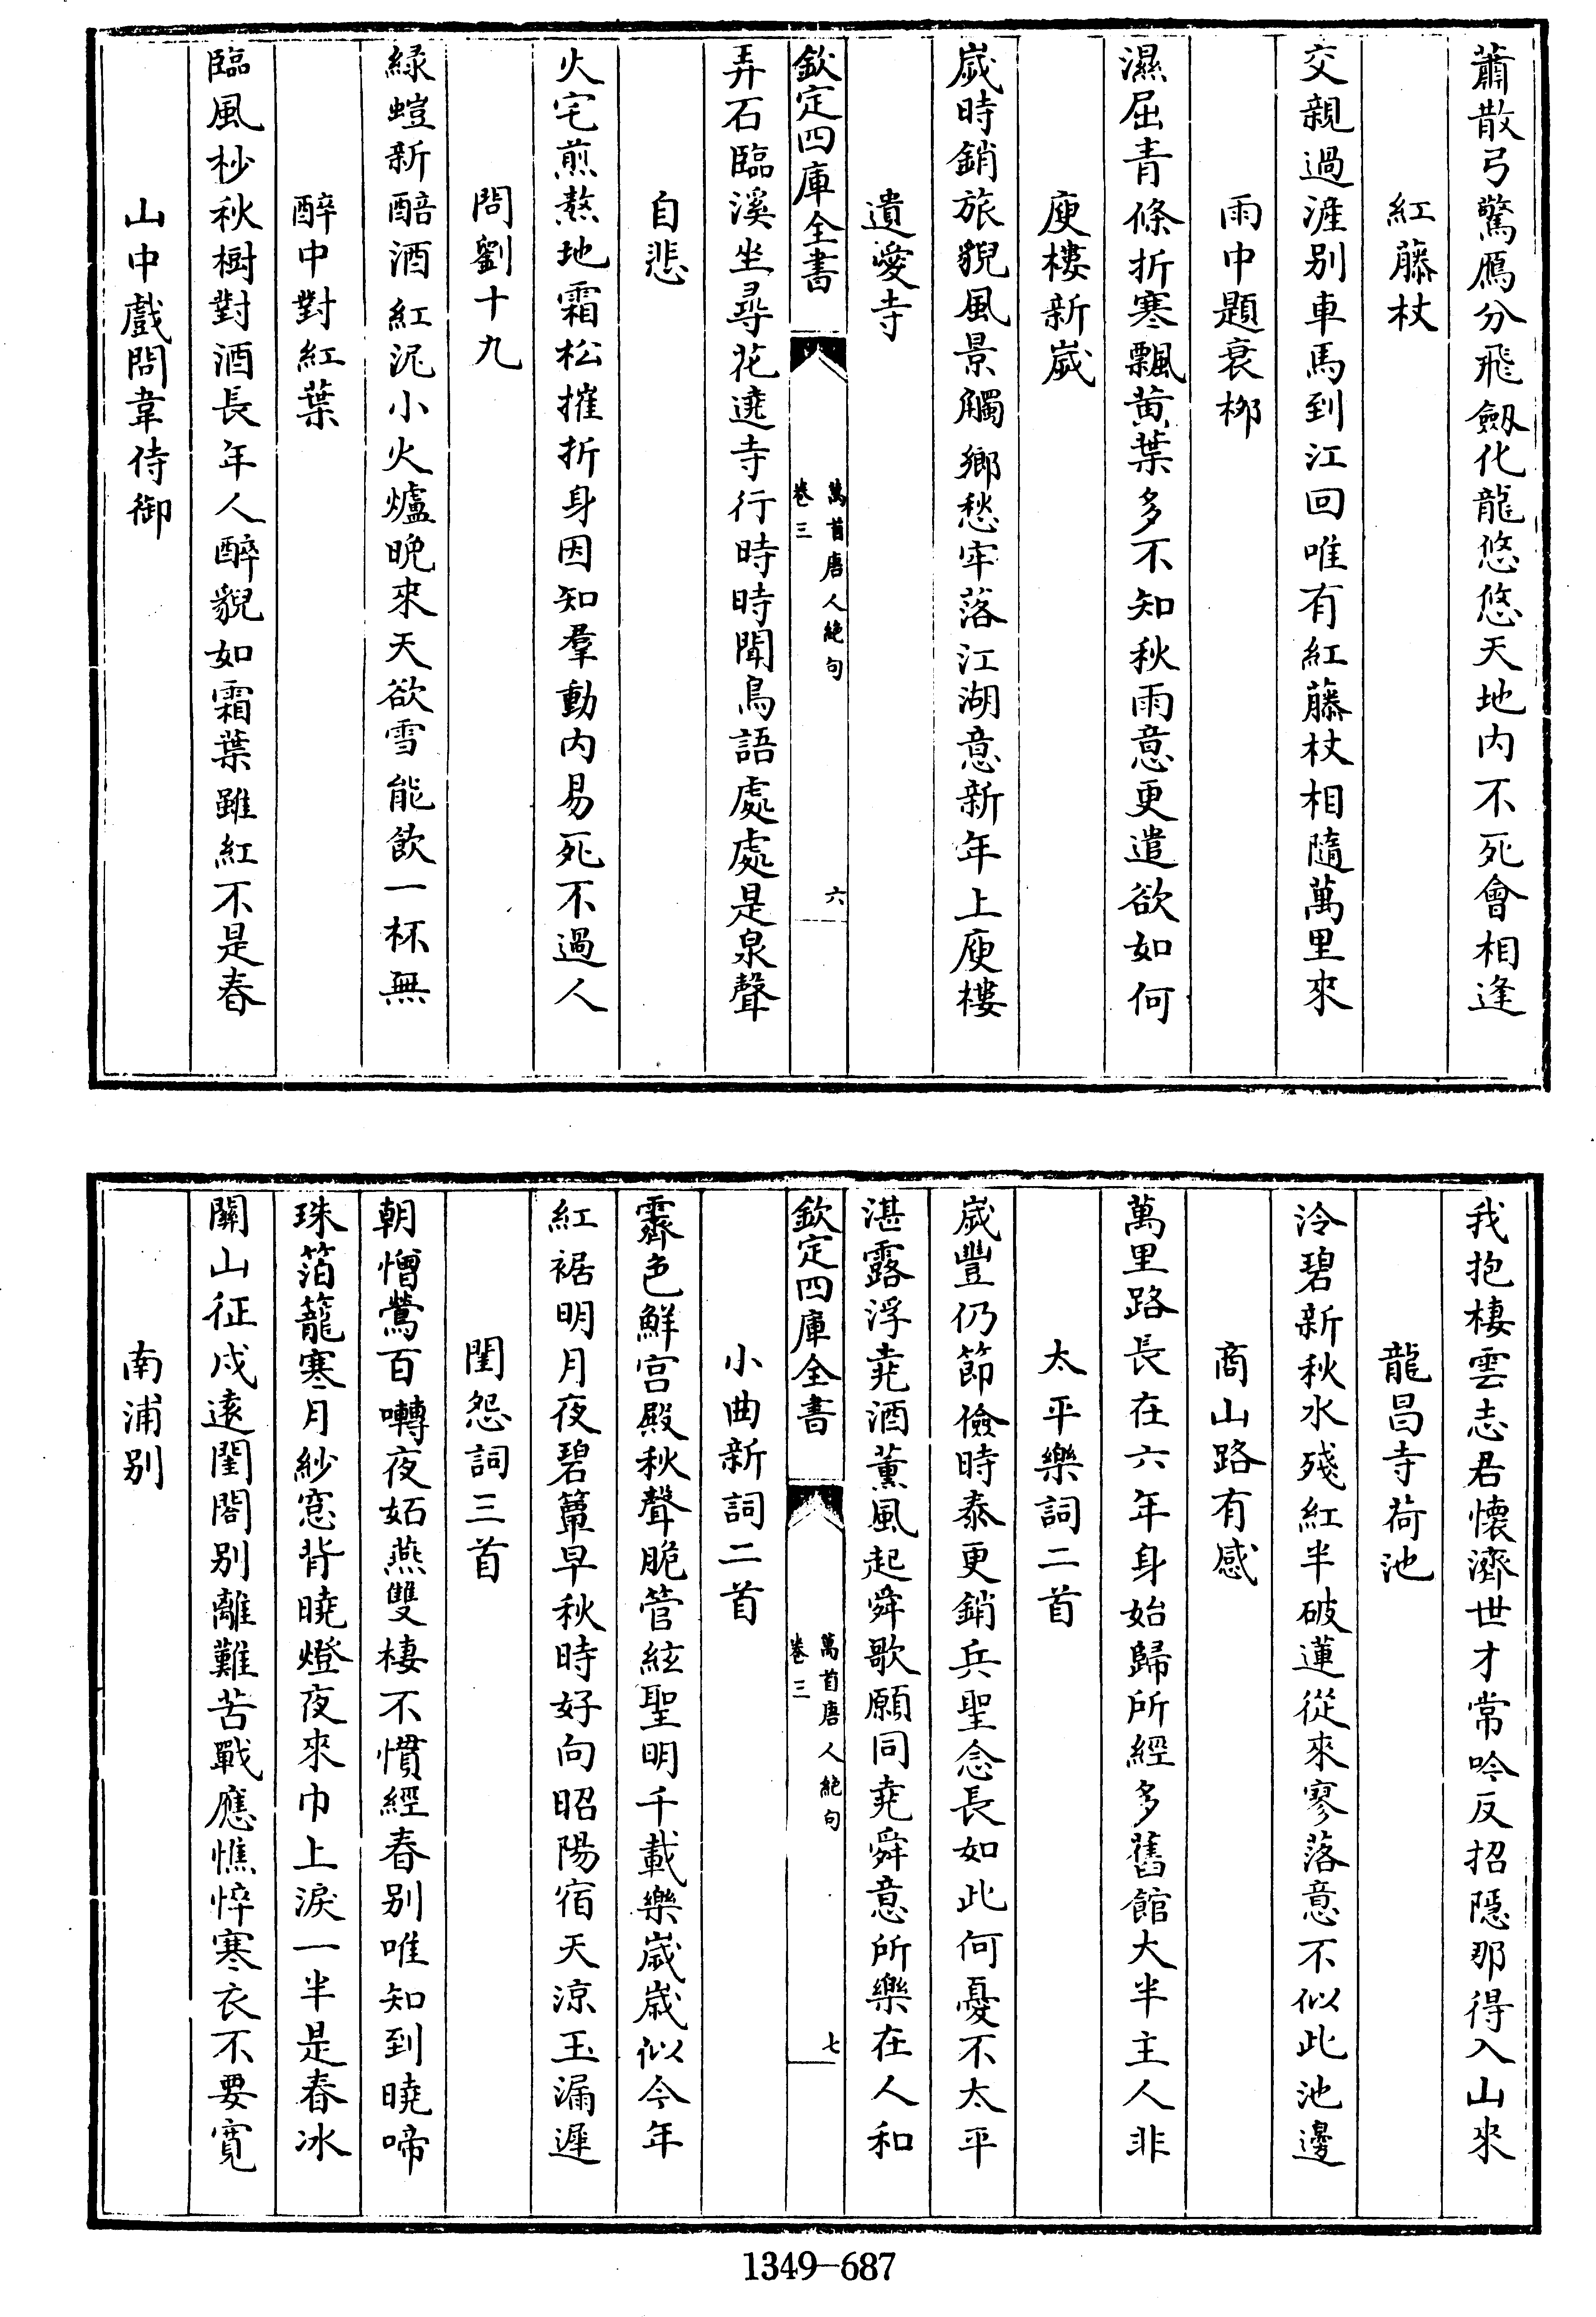 蕭散弓驚雁分飛劔化龍悠悠天地内不死會相逢
紅藤杖
交親過滻别車馬到江回唯有紅藤杖相隨萬里來
雨中題衰栁
濕屈青條折寒飄黄葉多不知秋雨意更遣欲如何
庾樓新歲
歲時銷旅貌風景觸鄉愁牢落江湖意新年上庾樓
遺愛寺
欽定四庫全書
萬首唐人絶句
卷三
六
弄石臨溪坐尋花遶寺行時時聞鳥語處處是泉聲
自悲
火宅煎熬地霜松摧折身因知羣動内易死不過人
問劉十九
緑螘新醅酒紅泥小火爐晚來天欲雪能飲一杯無
醉中對紅葉
臨風杪秋樹對酒長年人醉貌如霜葉雖紅不是春
山中戲問韋侍御
我抱棲雲志君懷濟世才常吟反招隱那得入山來
龍昌寺荷池
冷碧新秋水殘紅半破蓮從來寥落意不似此池邊
商山路有感
萬里路長在六年身始歸所經多舊館大半主人非
太平樂詞二首
歲豐仍節儉時泰更銷兵聖念長如此何憂不太平
湛露浮堯酒薰風起舜歌願同堯舜意所樂在人和
欽定四庫全書
萬首唐人絶句
卷三
七
小曲新詞二首
霽色鮮宫殿秋聲脆管絃聖明千載樂歲歲似今年
紅裾明月夜碧簟早秋時好向昭陽宿天涼玉漏遲
閨怨詞三首
朝憎鶯百囀夜妬燕雙棲不慣經春别唯知到曉啼
珠箔籠寒月紗窓背曉燈夜來巾上淚一半是春冰
關山征戍遠閨閤别離難苦戰應憔悴寒衣不要寛
南浦别
1349-687